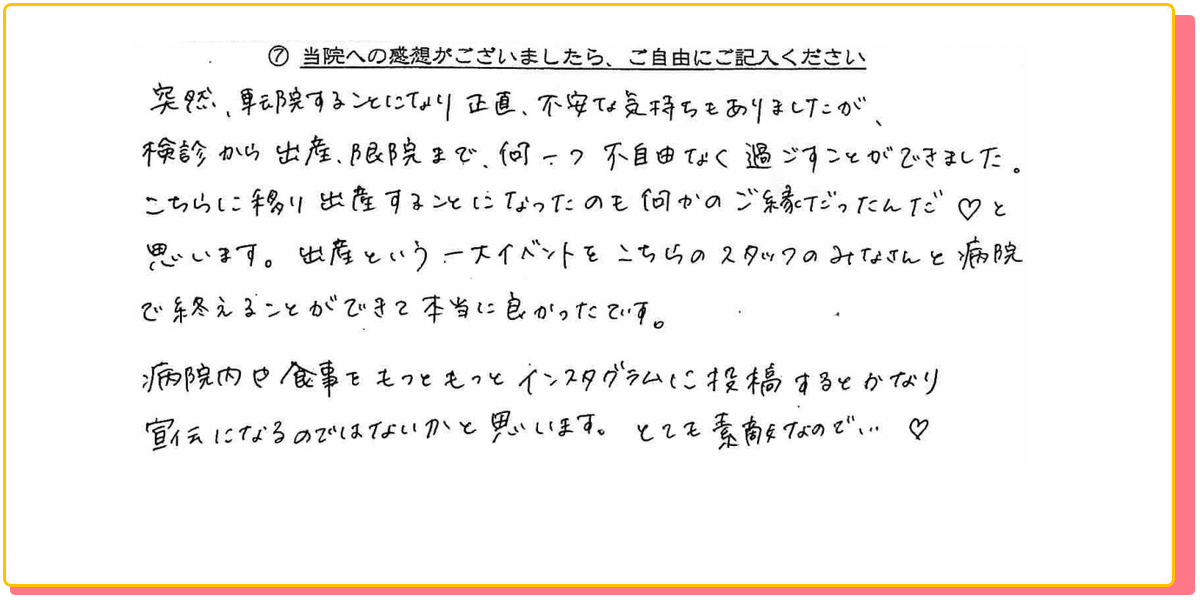 ⑦ 当院への感想がございましたら、ご自由にご記入ください
突然、転院することになり正直、不安な気持ちもありましたが、
検診から出産、退院まで、何一つ不自由なく過ごすことができました。
こちらに移り出産することになったのも何かのご縁だったんだ♡と
思います。出産という一大イベントをこちらのスタッフのみなさんと病院
で終えることができて本当に良かったです。
病院内や食事をもっともっとインスタグラムに投稿するとかなり
宣伝になるのではないかと思います。とても素敵なので… ♡